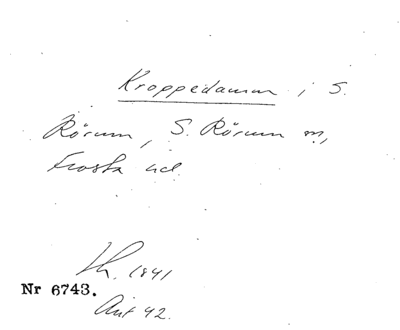 Kroppedamm i S.
Rörum, S. Rörum sn,
Frosta hd.
Lh. 1841
Nr 6743.
Avt 42.